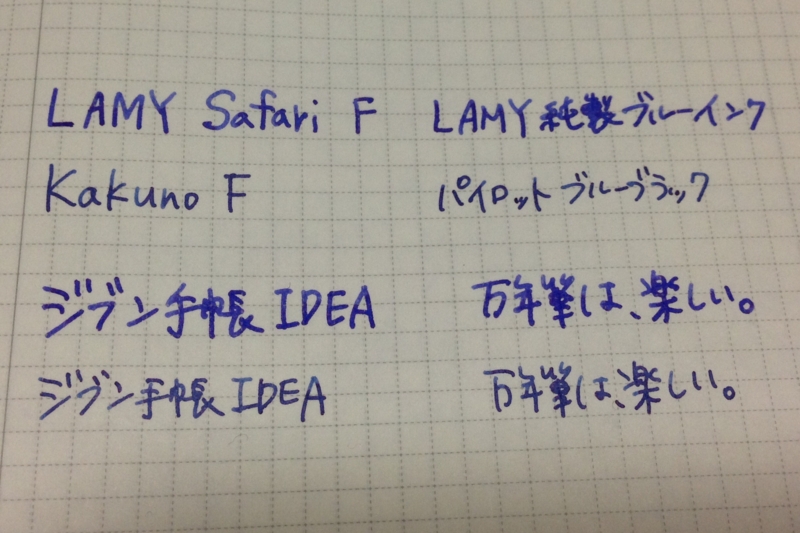 LAMY Safari F LAMY 純製ブルーインク
Kakuno F パイロット ブルーブラック
ジブン手帳 IDEA 万年筆は、楽しい。
ジブン手帳 IDEA 万年筆は、楽しい。